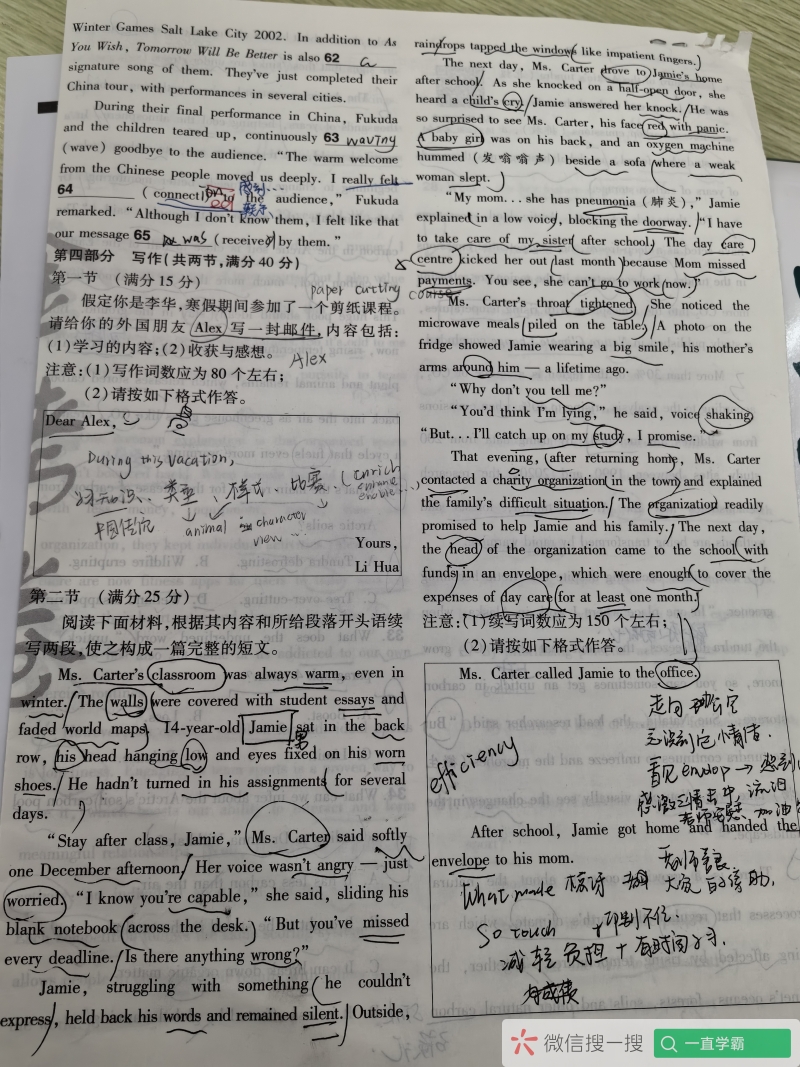 Winter Games Salt Lake City 2002. In addition to As
You Wish, Tomorrow Will Be Better is also 62 a
signature song of them. They've just completed their
China tour, with performances in several cities.
During their final performance in China, Fukuda
and the children teared up, continuously 63 waving
(wave) goodbye to the audience. "The warm welcome
from the Chinese people moved us deeply. I really felt
64 (connect) to the audience," Fukuda
remarked. "Although I don't know them, I felt like that
our message 65 was (receive) by them."
第四部分 写作(共两节,满分40分)
第一节 (满分15分)
paper cutting
course
假定你是李华,寒假期间参加了一个剪纸课程。
请给你的外国朋友 Alex 写一封邮件,内容包括:
(1)学习的内容;(2)收获与感想。
Alex
注意:(1)写作词数应为80个左右;
(2)请按如下格式作答。
Dear Alex,
During this vacation,
知识、类型、样式、比赛 (enrich
enhance
enable...)
中国传统
animal
character
view...
Yours,
Li Hua
第二节 (满分25分)
阅读下面材料,根据其内容和所给段落开头语续
写两段,使之构成一篇完整的短文。
Ms. Carter's classroom was always warm, even in
winter. The walls were covered with student essays and
faded world maps. 14-year-old Jamie sat in the back
男
row, his head hanging low and eyes fixed on his worn
shoes. He hadn't turned in his assignments for several
days.
"Stay after class, Jamie," Ms. Carter said softly
one December afternoon. Her voice wasn't angry — just
worried. "I know you're capable," she said, sliding his
blank notebook across the desk. "But you've missed
every deadline. Is there anything wrong?"
Jamie, struggling with something he couldn't
express, held back his words and remained silent. Outside,
raindrops tapped the windows like impatient fingers.
The next day, Ms. Carter drove to Jamie's home
after school. As she knocked on a half-open door, she
heard a child's cry. Jamie answered her knock. He was
so surprised to see Ms. Carter, his face red with panic.
A baby girl was on his back, and an oxygen machine
hummed (发嗡嗡声) beside a sofa where a weak
woman slept.
"My mom... she has pneumonia (肺炎)," Jamie
explained in a low voice, blocking the doorway. "I have
to take care of my sister after school. The day care
centre kicked her out last month because Mom missed
payments. You see, she can't go to work now."
Ms. Carter's throat tightened. She noticed the
microwave meals piled on the table. A photo on the
fridge showed Jamie wearing a big smile, his mother's
arms around him — a lifetime ago.
"Why don't you tell me?"
"You'd think I'm lying," he said, voice shaking.
"But... I'll catch up on my study, I promise."
That evening, after returning home, Ms. Carter
contacted a charity organization in the town and explained
the family's difficult situation. The organization readily
promised to help Jamie and his family. The next day,
the head of the organization came to the school with
funds in an envelope, which were enough to cover the
expenses of day care for at least one month.
注意:(1)续写词数应为150个左右;
(2)请按如下格式作答。
Ms. Carter called Jamie to the office.
走向办公室
efficiency
After school, Jamie got home and handed the
envelope to his mom.
What made
大家的帮助,
So touch
抑制不住.
减轻负担 + 有时间学习.
微信搜一搜
一直学霸